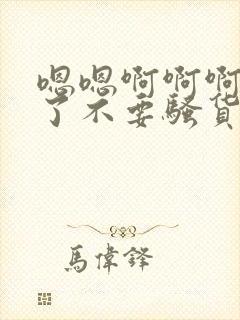 嗯嗯啊啊啊
了不要骚货
馬偉鋒